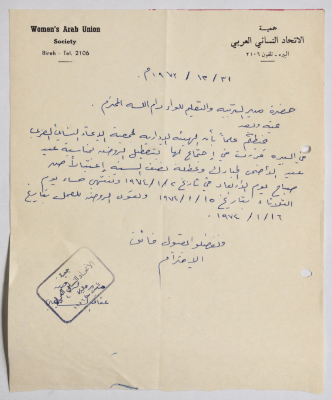 Women's Arab Union
Society
Bireh - Tel. 2106
جمعية
الاتحاد النسائي العربي
البيره - تلفون ٢١٠٦
٣١ / ١٢ / ١٩٧٣م.
حضرة مدير التربية والتعليم للواء رام الله المحترم
تحية وبعد
علماً بأن الهيئة الادارية لجمعية الاتحاد النسائي العربي
في البيرة قررت في إجتماع لها تعطيل الروضة بمناسبة عيد
عيد الأضحى المبارك وعطلة نصف السنة إعتباراً من
صباح يوم الأربعاء في تاريخ ١٩٧٤/١/٢ وتنتهي مساء يوم
الثلاثاء بتاريخ ١٩٧٤/١/١٥ وتعود الروضة للعمل بتاريخ
١٩٧٤/١/١٦ .
وتفضلوا بقبول فائق
الاحترام
جمعية
الاتحاد النسائي العربي